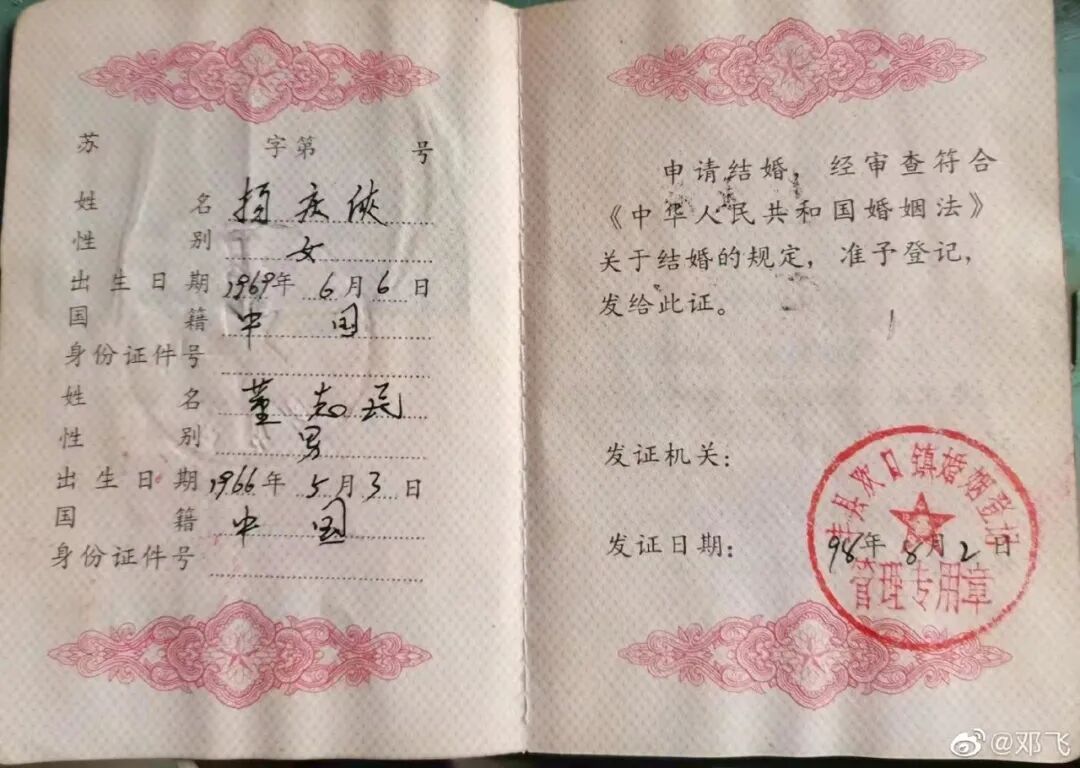 苏 字第 号
姓 名 杨庆俠
性 别 女
出生日期 1969年 6月6日
国 籍 中国
身份证件号
姓 名 董志民
性 别 男
出生日期 1966年 5月3日
国 籍 中国
身份证件号
申请结婚，经审查符合
《中华人民共和国婚姻法》
关于结婚的规定，准予登记，
发给此证。
发证机关：
丰县欢口镇婚姻登记
发证日期： 98年 8月2日
管理专用章
@邓飞